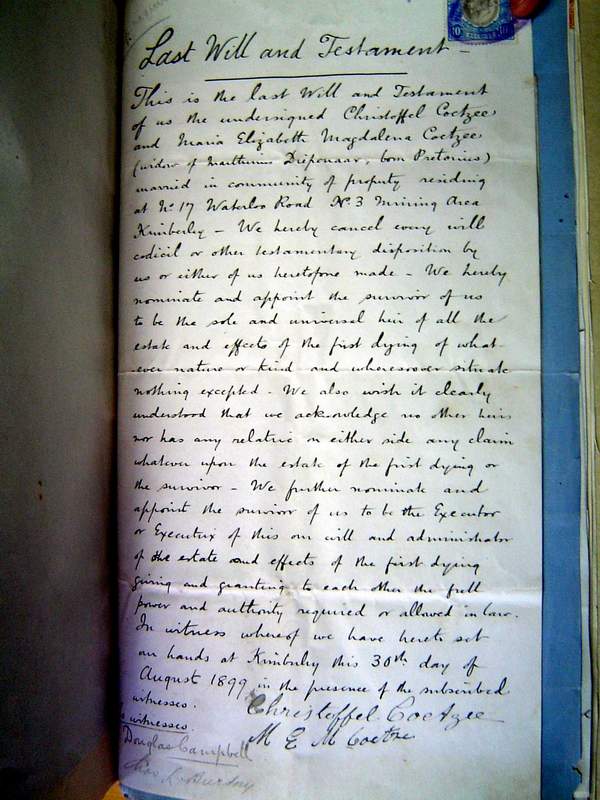 Last Will and Testament -
This is the last Will and Testament
of us the undersigned Christoffel Coetzee
and Maria Elizabeth Magdalena Coetzee
(widow of Marthinus Diepenaar, born Pretorius)
married in community of property residing
at No 17 Waterloo Road No. 3 Mining Area
Kimberley - We hereby cancel every will
codicil or other testamentary disposition by
us or either of us heretofore made - We hereby
nominate and appoint the survivor of us
to be the sole and universal heir of all the
estate and effects of the first dying of what-
-ever nature or kind and wheresoever situate
nothing excepted - We also wish it clearly
understood that we acknowledge no other heirs
nor has any relative on either side any claim
whatever upon the estate of the first dying or
the survivor - We further nominate and
appoint the survivor of us to be the Executor
or Executrix of this our will and administrator
of the estate and effects of the first dying
giving and granting to each other the full
power and authority required or allowed in law.
In witness whereof we have hereto set
our hands at Kimberley this 30th day of
August 1899 in the presence of the subscribed
witnesses.
Christoffel Coetzee
As witnesses.
M E M Coetzee
Douglas Campbell